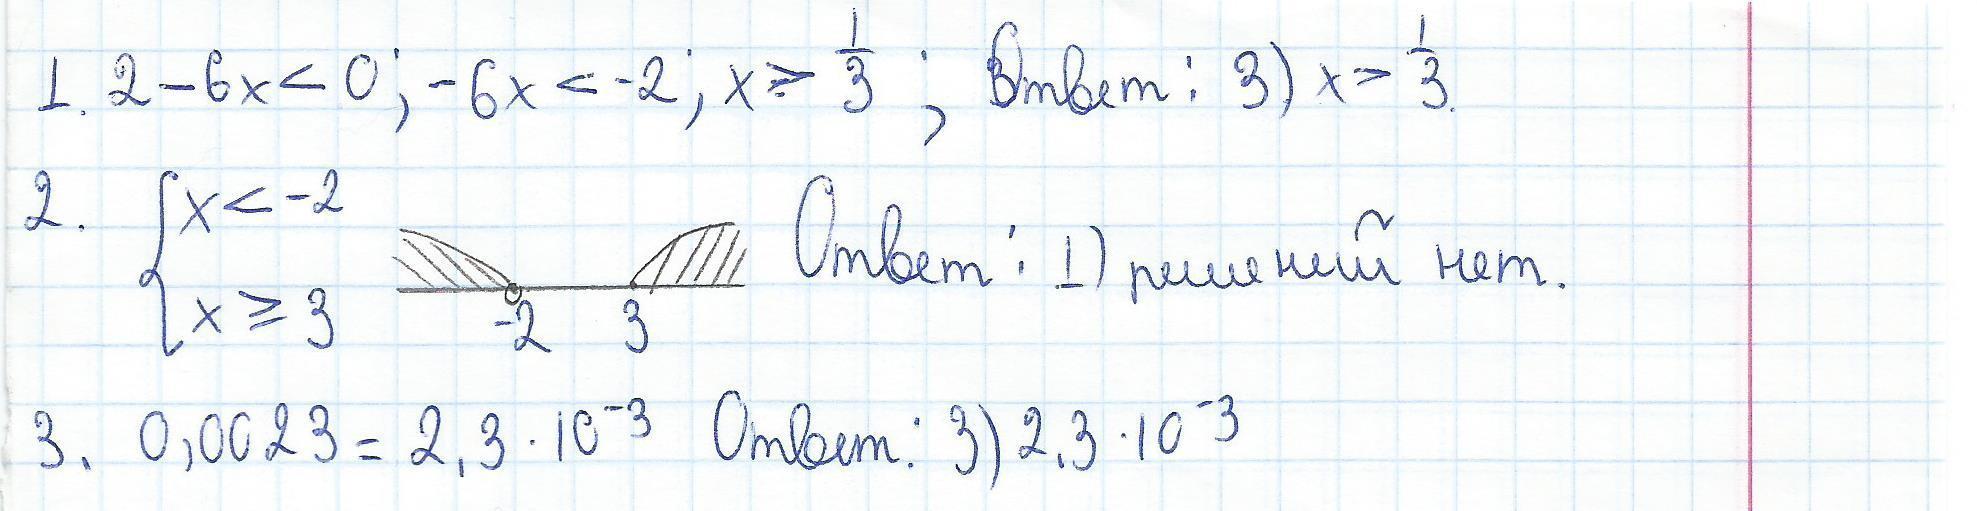 1. 2-6x<0; -6x<-2; x≥1/3; Ответ: 3) x>1/3.
2. {x<-2
x≥3
-2 3
Ответ: 1) решений нет.
3. 0,0023=2,3·10⁻³ Ответ: 3) 2,3·10⁻³